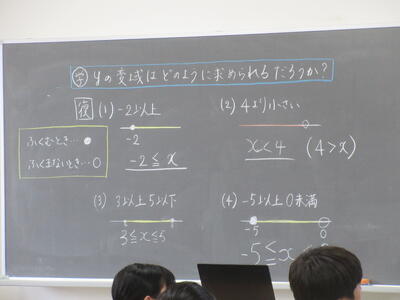 学 yの変域はどのように求められるだろうか?
復 (1) -2以上
-2
-2 ≦ x
(2) 4より小さい
x < 4 (4 > x)
ふくむとき…●
ふくまないとき…○
(3) 3以上5以下
3 ≦ x ≦ 5
(4) -5以上0未満
-5 0
-5 ≦ x